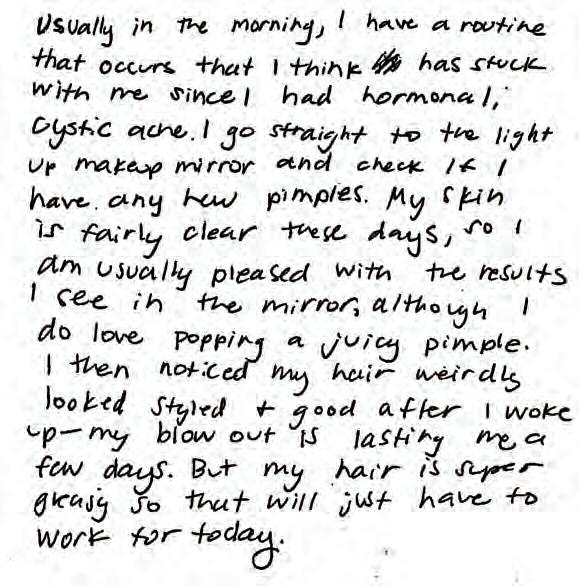 Usually in the morning, I have a routine
that occurs that I think has stuck
with me since I had hormonal,
cystic acne. I go straight to the light
up makeup mirror and check if I
have any new pimples. My skin
is fairly clear these days, so I
am usually pleased with the results
I see in the mirror, although I
do love popping a juicy pimple.
I then noticed my hair weirdly
looked styled + good after I woke
up—my blow out is lasting me a
few days. But my hair is super
greasy so that will just have to
work for today.